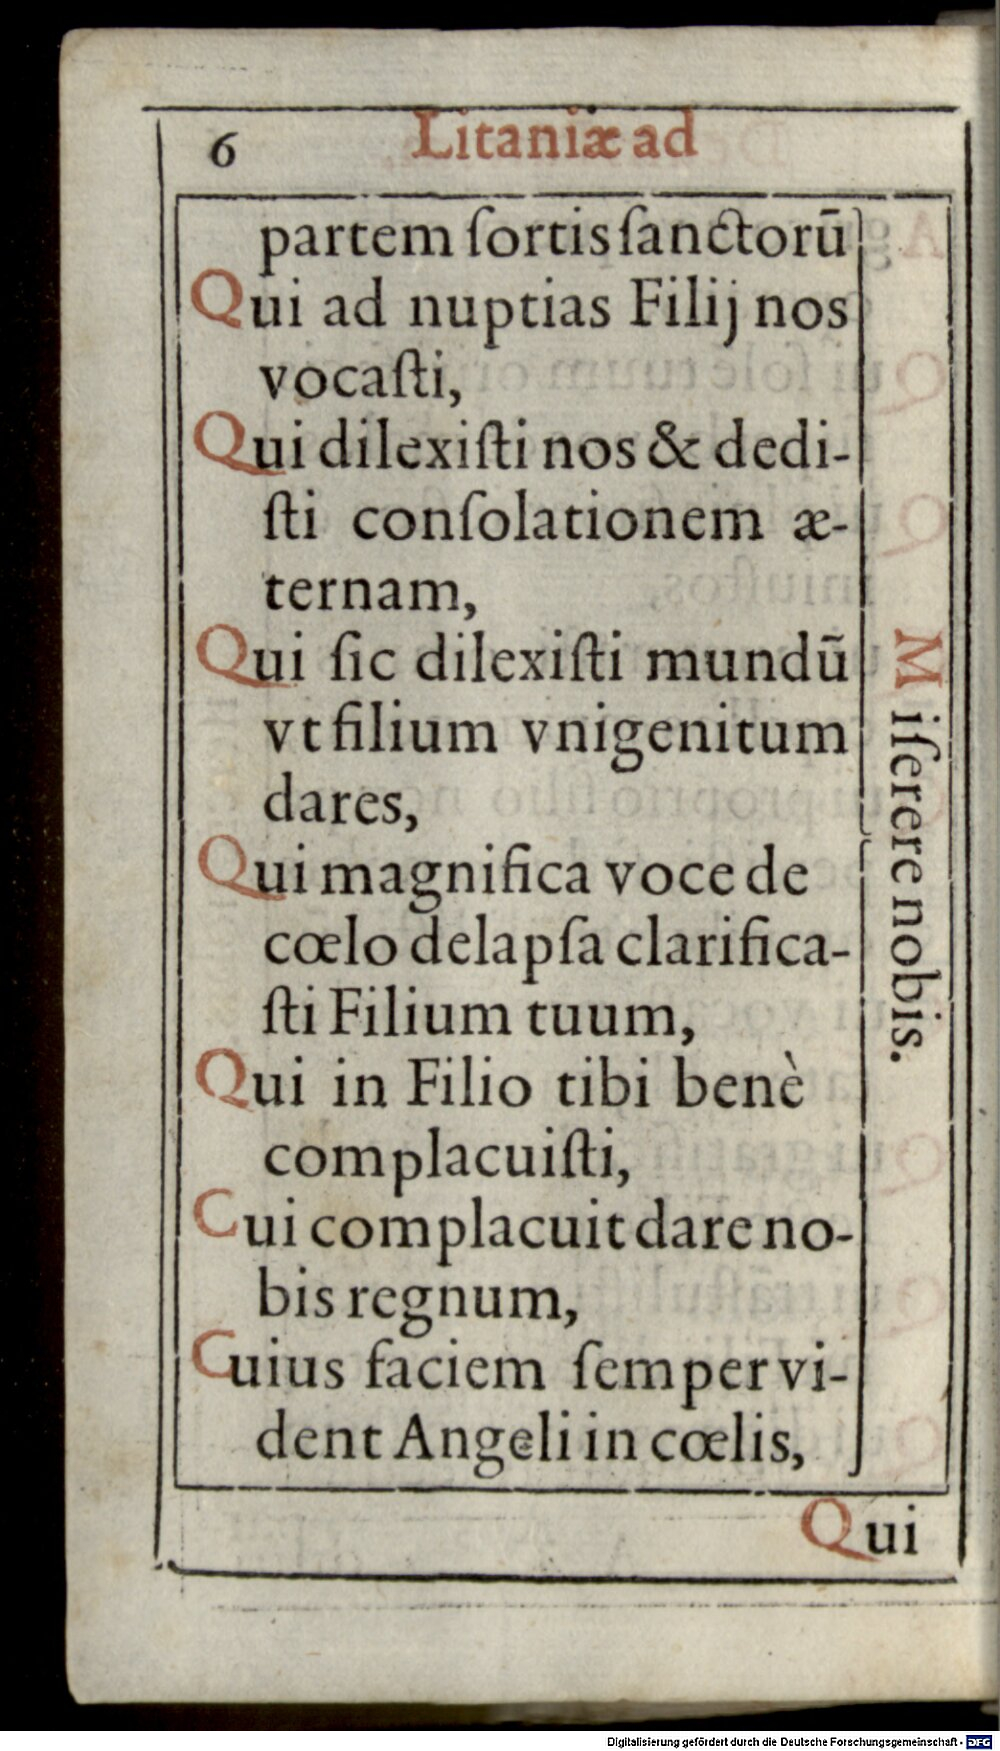 6
Litaniæ ad
partem ſortis ſanctorū
Qui ad nuptias Filij nos
vocaſti,
Qui dilexiſti nos & dedi-
ſti conſolationem æ-
ternam,
Qui ſic dilexiſti mundū
vt filium vnigenitum
dares,
Qui magnifica voce de
cœlo delapſa clarifica-
ſti Filium tuum,
Qui in Filio tibi benè
complacuiſti,
Cui complacuit dare no-
bis regnum,
Cuius faciem ſemper vi-
dent Angeli in cœlis,
Miſerere nobis.
Qui
Digitalisierung gefördert durch die Deutsche Forschungsgemeinschaft - DFG